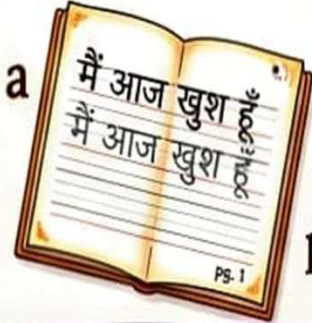 a
मैं आज खुश हूँ
मैं आज खुश हूँ
Pg. 1